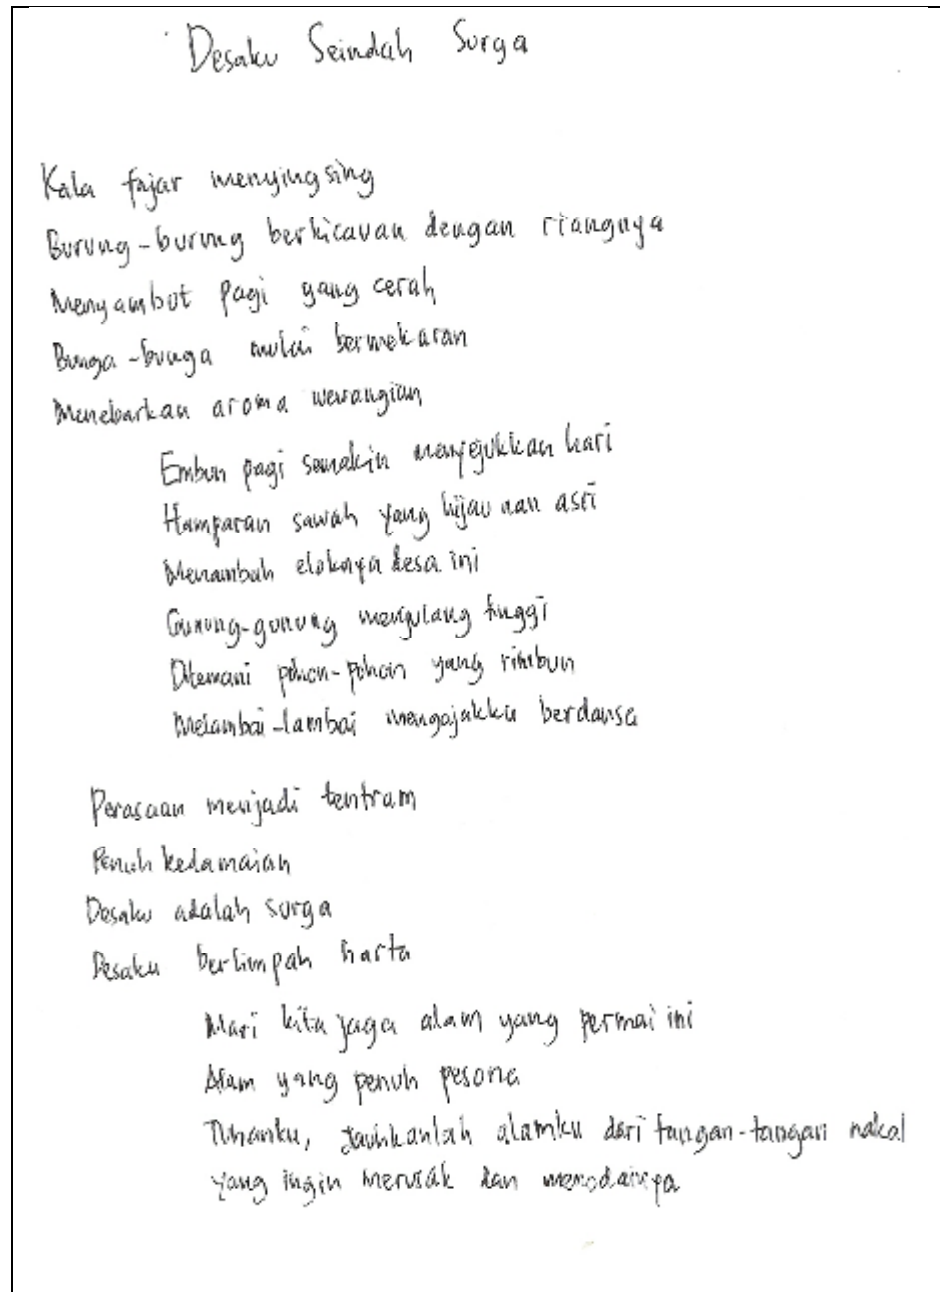 Desaku Seindah Surga
Kala fajar menyingsing
Burung-burung berkicauan dengan riangnya
Menyambut pagi yang cerah
Bunga-bunga mulai bermekaran
Menebarkan aroma wewangian
Embun pagi semakin menyejukkan hari
Hamparan sawah yang hijau nan asri
Menambah eloknya desa ini
Gunung-gunung menjulang tinggi
Ditemani pohon-pohon yang rimbun
Melambai-lambai mengajakku berdansa
Perasaan menjadi tentram
Penuh kedamaian
Desaku adalah surga
Desaku berlimpah harta
Mari kita jaga alam yang permai ini
Alam yang penuh pesona
Tuhanku, jauhkanlah alamku dari tangan-tangan nakal
yang ingin merusak dan menodainya